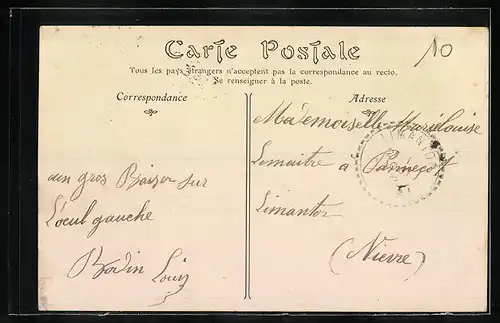 Carte Postale
10
Tous les pays étrangers n'acceptent pas la correspondance au recto.
Se renseigner à la poste.
Correspondance
aun gros Baiser sur
L'oeul gauche
Bodin Louis
Adresse
Mademoiselle Marielouise
Lemaitre a Panneçot
Limanton
(Nievre)
LIMANTON